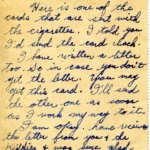 Here is one of the
cards that are sent with
the cigarettes. I told you
I'd send the card back.
I have written a letter
too. So in case you don't
get the letter. You may
get this card. I'll send
the other one as soon
as I work my way to it.
I am okay. Have received
the letter from you & the
& was sure glad